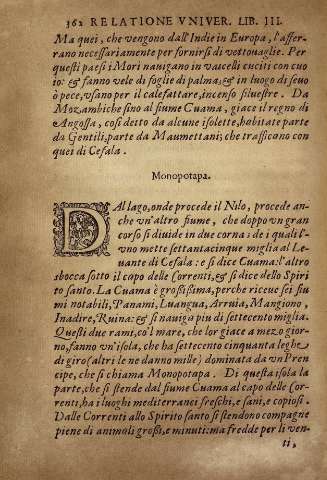 362 RELATIONE VNIVER. LIB. III.
Ma quei, che vengono dall'Indie in Europa, l'affer-
rano necessariamente per fornirsi di vettouaglie. Per
questi paesi i Mori nauigano in vascelli cuciti con cuo
io: & fanno vele di foglie di palma; & in luogo di seuo
ò pece, vsano per il calefattare, incenso siluestre. Da
Mozambiche sino al fiume Cuama, giace il regno di
Angossa, così detto da alcune isolette, habitate parte
da Gentili, parte da Maumettani; che trafficano con
quei di Cefala.
Monopotapa.
DAl lago, onde procede il Nilo, procede an-
che vn'altro fiume, che doppo vn gran
corso si diuide in due corna: de i quali l'v-
vno mette settantacinque miglia al Le-
uante di Cefala: e si dice Cuama: l'altro
sbocca sotto il capo delle Correnti, & si dice dello Spiri
to santo. La Cuama è grossissima, perche riceue sei fiu
mi notabili, Panami, Luangua, Arruia, Mangiono,
Inadire, Ruina: & si nauiga piu di settecento miglia.
Questi due rami, co'l mare, che lor giace a mezo gior-
no, fanno vn'isola, che ha settecento cinquanta leghe
di giro (altri le ne danno mille) dominata da vn Pren
cipe, che si chiama Monopotapa. Di questa isola la
parte, che si stende dal fiume Cuama al capo delle Cor-
renti, ha i luoghi mediterranei freschi, e sani, e copiosi.
Dalle Correnti allo Spirito santo si stendono campagne
piene di animali grossi, e minuti: ma fredde per li ven-
ti,